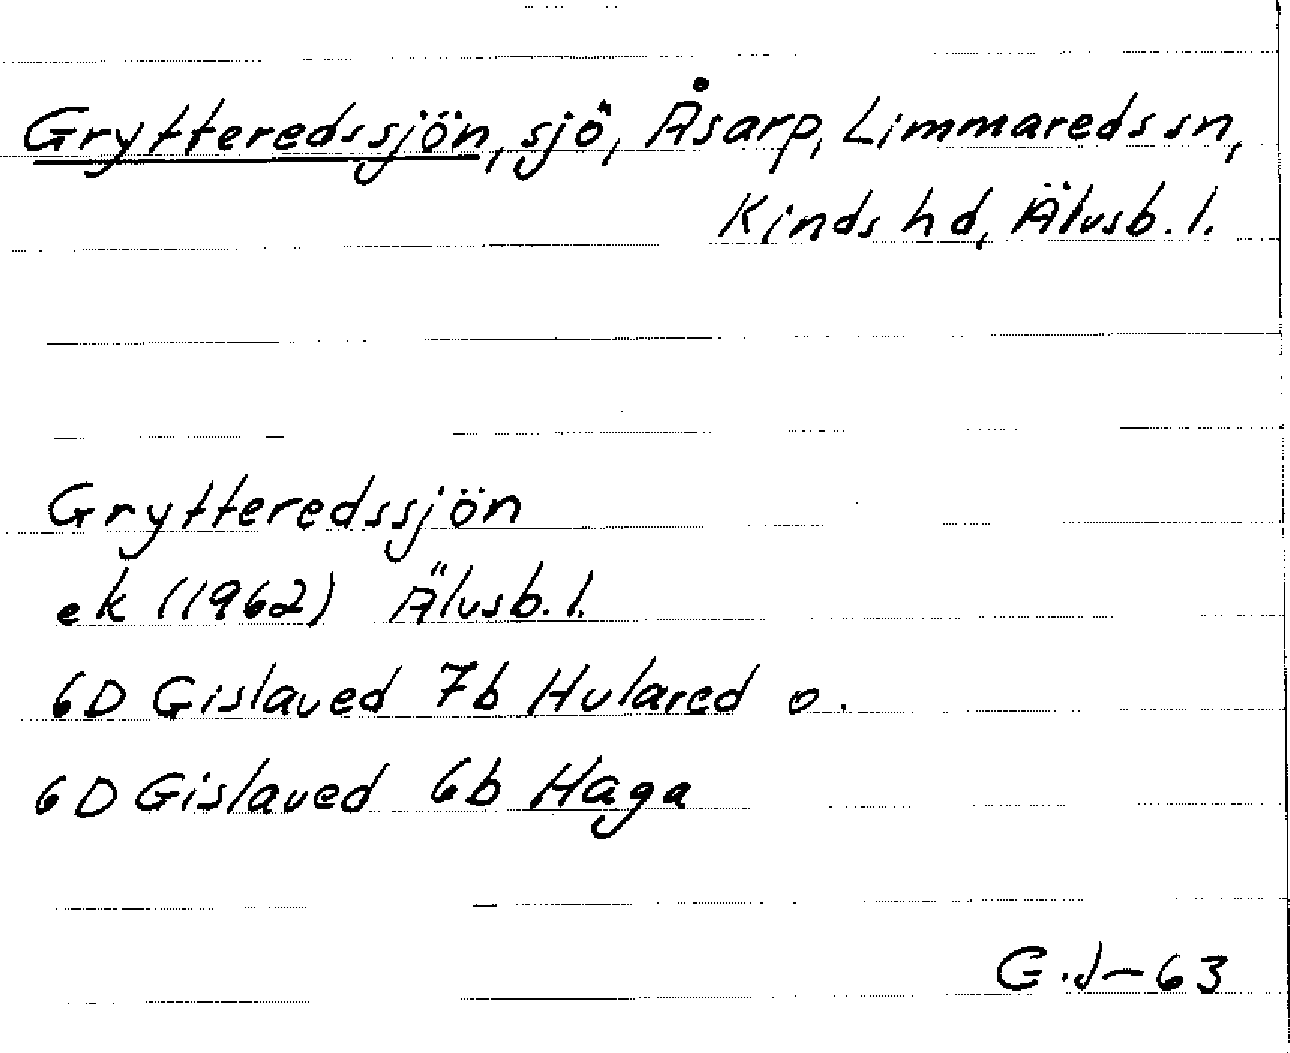 Grytteredssjön, sjö, Åsarp, Limmareds sn,
Kinds hd, Älvsb. l.
Grytteredssjön
ek (1962) Älvsb. l.
6D Gislaved 7b Hulared o.
6D Gislaved 6b Haga
G.J-63